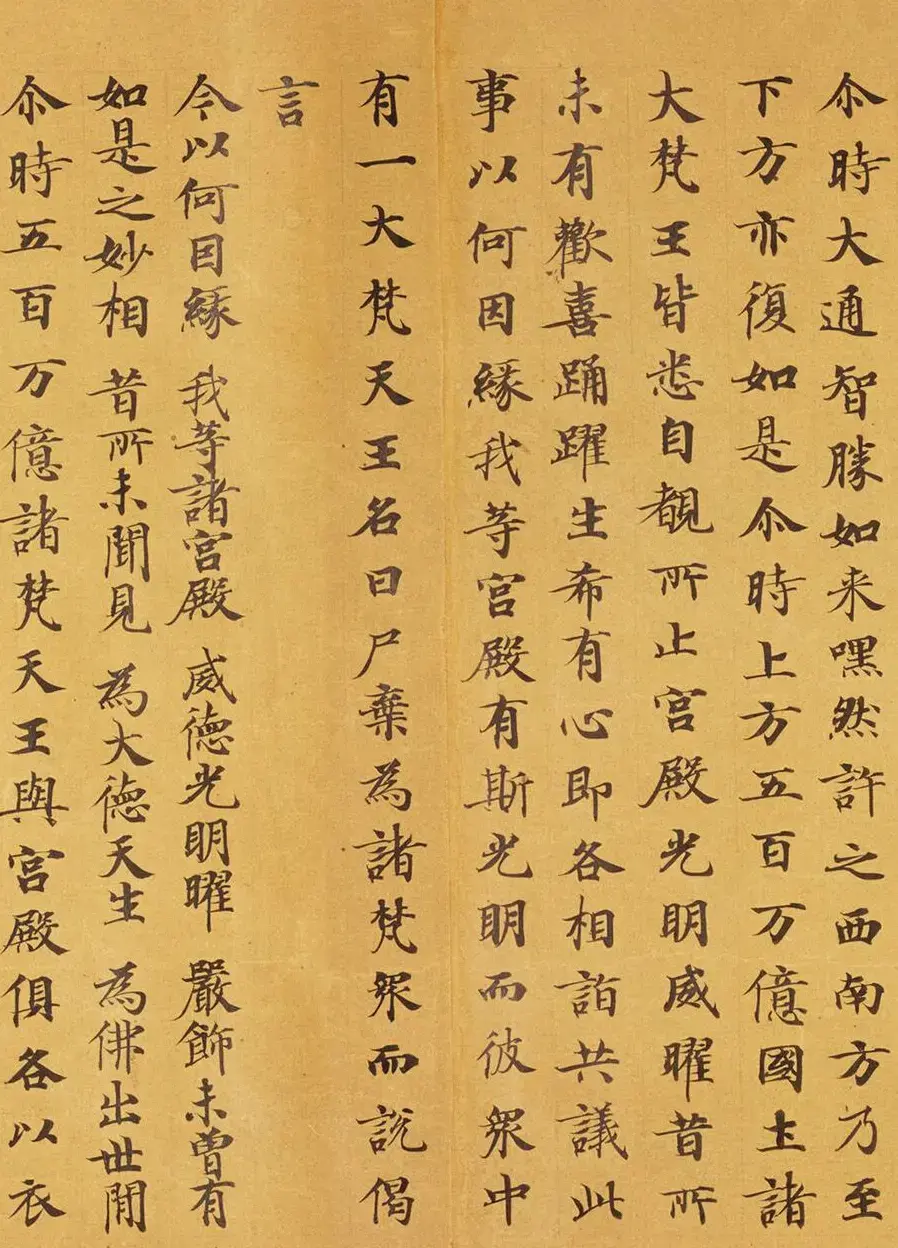 尒時大通智勝如来嘿然許之西南方乃至
下方亦復如是尒時上方五百万億國土諸
大梵王皆悉自覩所止宫殿光明威曜昔所
未有歡喜踊躍生希有心即各相詣共議此
事以何因緣我等宫殿有斯光明而彼眾中
有一大梵天王名曰尸棄為諸梵眾而說偈
言
今以何因緣 我等諸宫殿 威德光明曜 嚴飾未曾有
如是之妙相 昔所未聞見 為大德天生 為佛出世間
尒時五百万億諸梵天王與宫殿俱各以衣